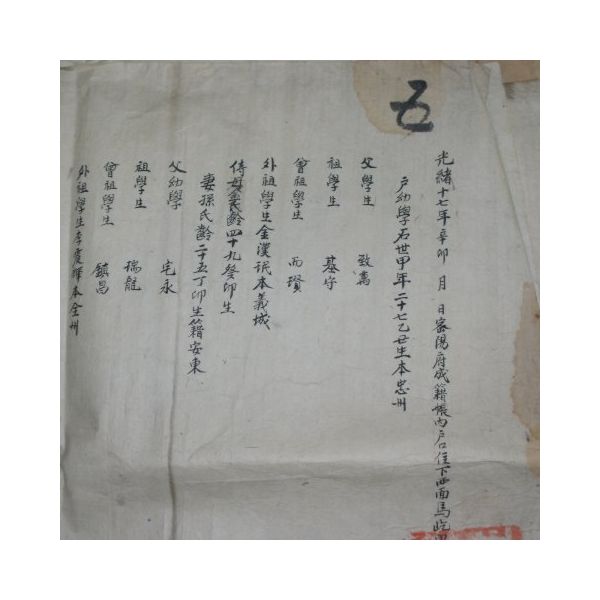 五
光緖十七年辛卯 月 日密陽府成籍帳內戶口住下西面馬屹
戶幼學石世甲年二十七乙丑生本忠州
父學生 致萬
祖學生 基守
曾祖學生 而賢
外祖學生金漢珉本義城
侍母金氏齡四十九癸卯生
妻孫氏齡二十五丁卯生籍安東
父幼學 宅永
祖學生 瑞龍
曾祖學生 鎮昌
外祖學生李震輝本全州